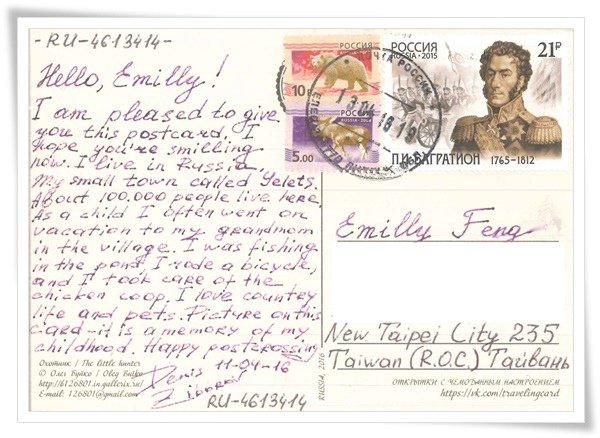 -RU-4613414-
Hello, Emilly!
I am pleased to give
you this postcard, I
hope you're smilling
now. I live in Russia.
My small town called Yelets.
About 100.000 people live here.
As a child I often went on
vacation to my grandmom
in the village. I was fishing
in the pond, I rode a bicycle,
and I took care of the
chicken coop. I love country
life and pets. Picture on this
card-it is a memory of my
childhood. Happy postcrossing
Denis 11-04-16
Охотник / The little hunter
© Олег Буйко / Oleg Buiko
http://6126801.in.gallerix.ru/
E-mail: 126801@gmail.com
RU-4613414
РОССИЯ
10
РОССИЯ
RUSSIA
5.00
ПОЧТА РОССИИ
13 04 16 19
РОССИЯ
RUSSIA·2015
21₽
П.И. БАГРАТИОН
1765-1812
Emilly Feng
New Taipei City 235
Taiwan (R.O.C.) Тайвань
RUSSIA, 2016
ОТКРЫТКИ С ЧЕМОДАННЫМ НАСТРОЕНИЕМ
https://vk.com/travelingcard